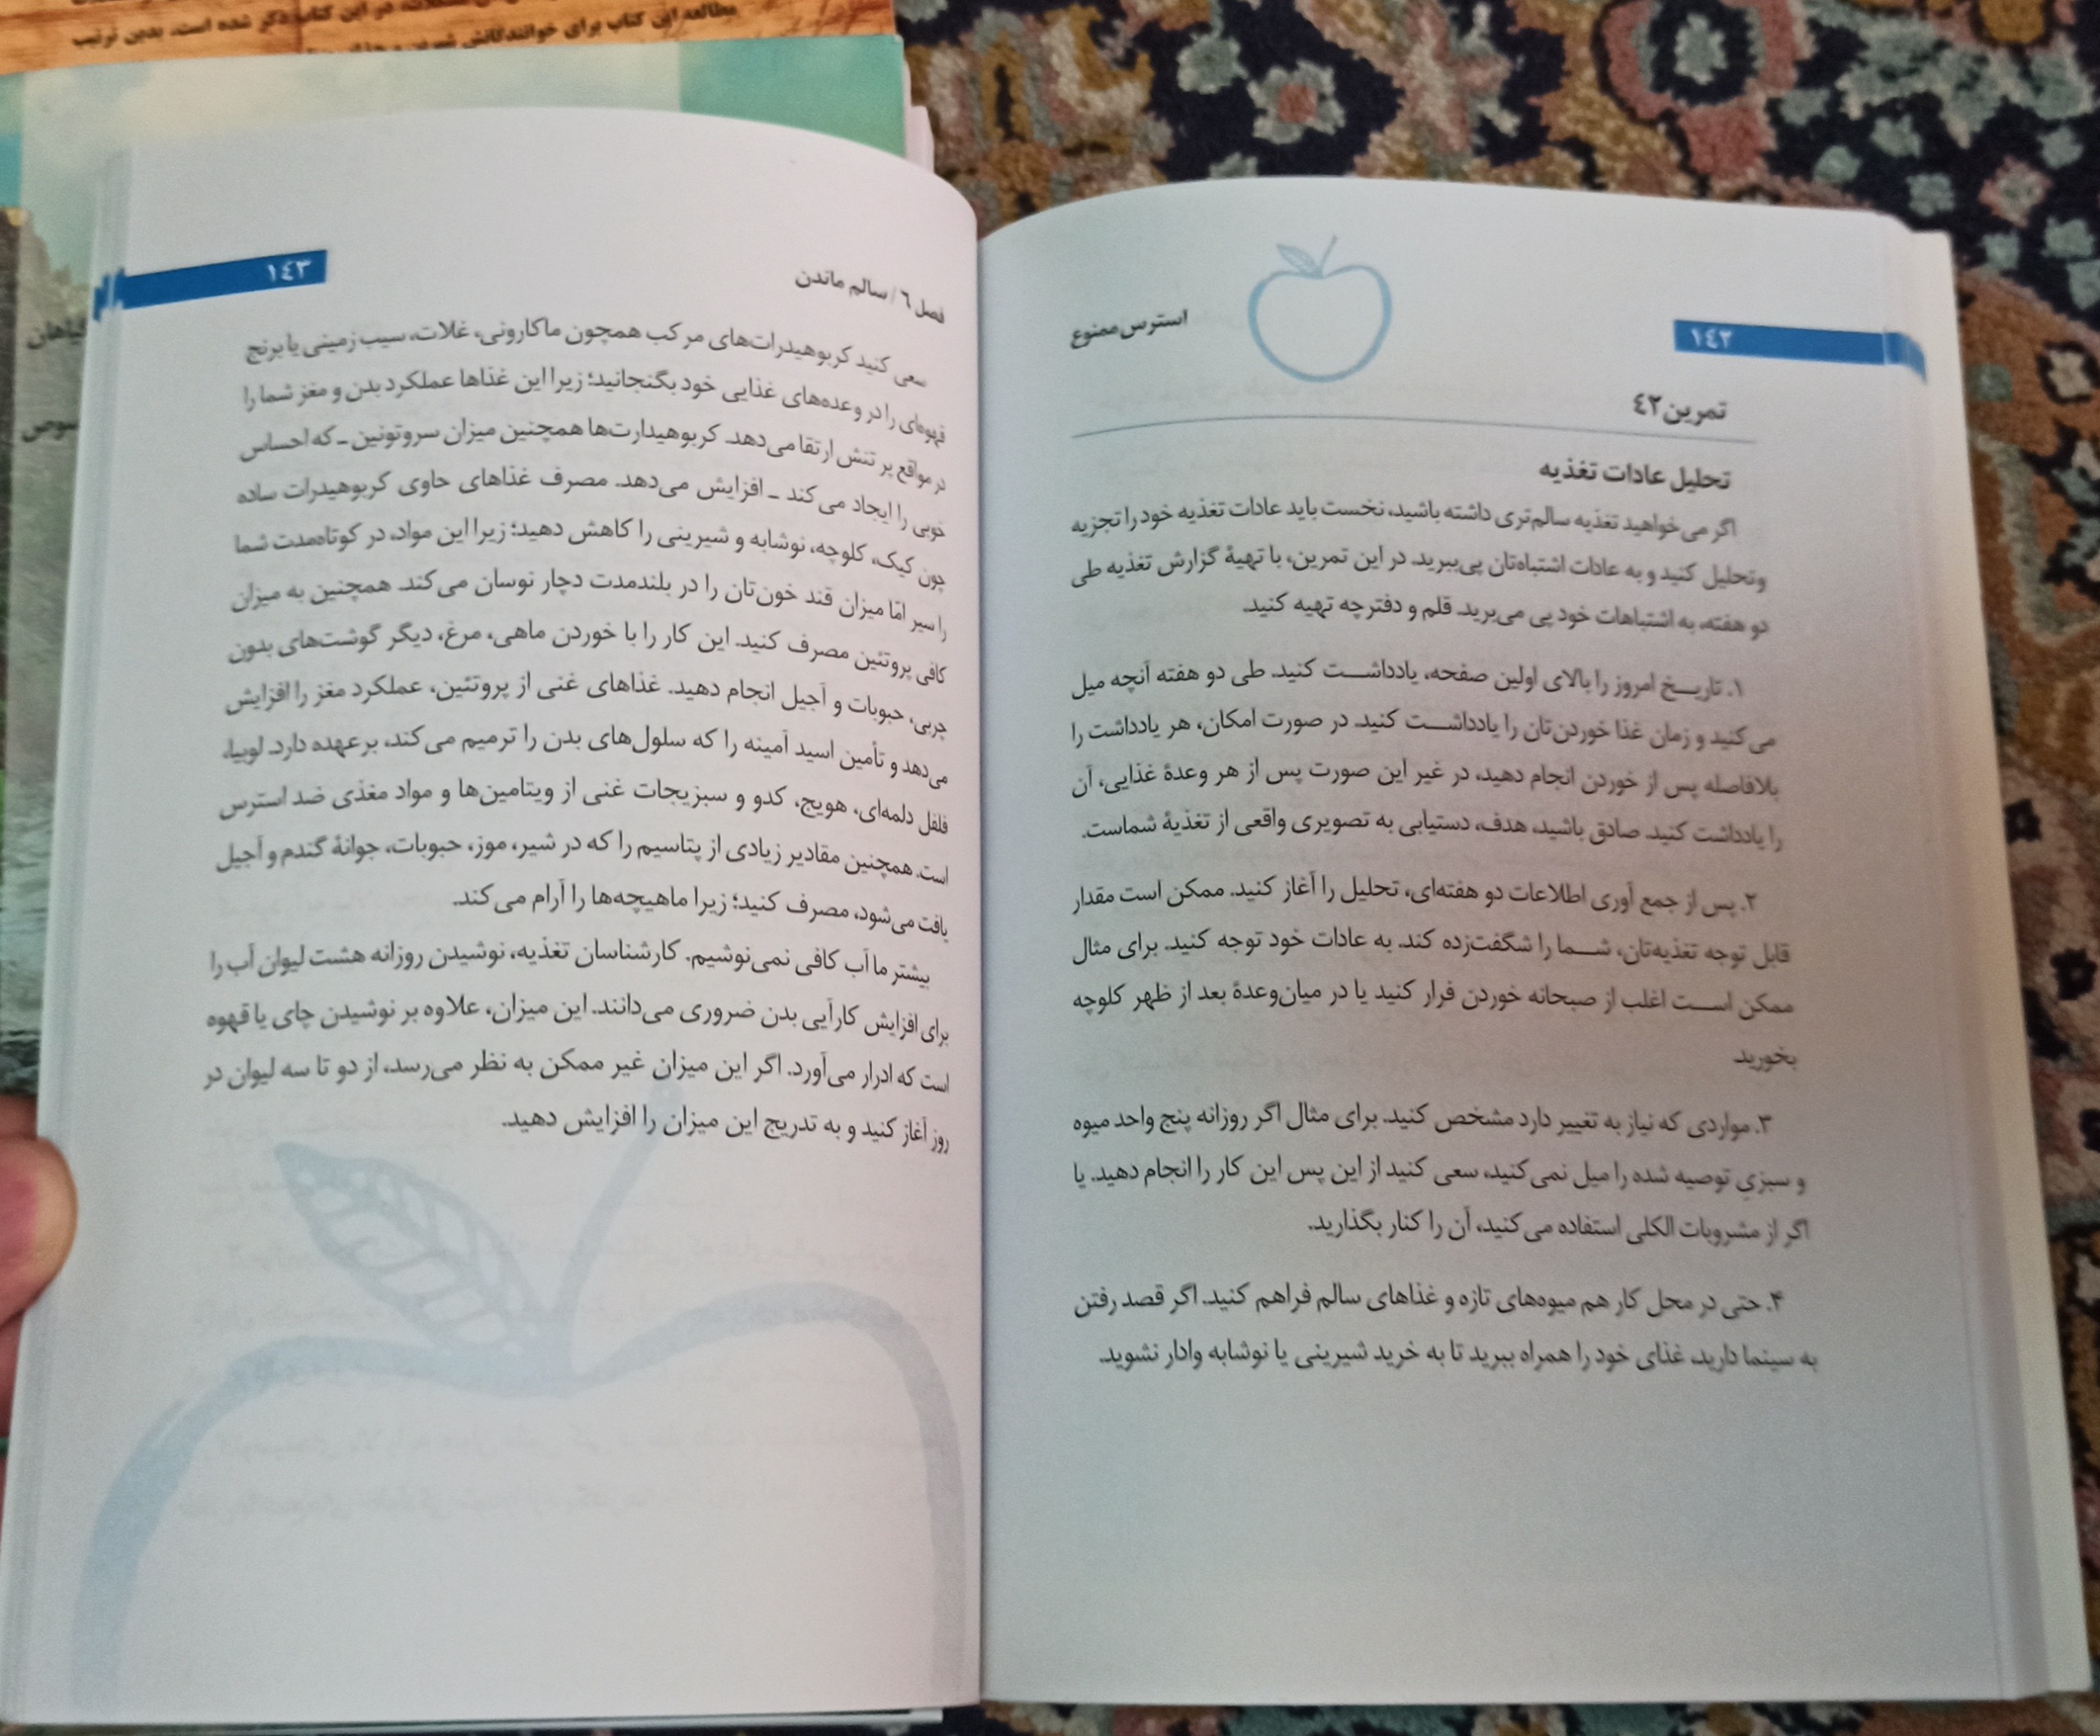 مطالعه این کتاب برای خوانندگانش
در این کتاب ذکر شده است. بدین ترتیب
گیاهان
۱٤۲
استرس ممنوع
تمرین ٤۲
تحلیل عادات تغذیه
اگر می‌خواهید تغذیه سالم‌تری داشته باشید، نخست باید عادات تغذیه خود را تجزیه
وتحلیل کنید و به عادات اشتباه‌تان پی‌ببرید. در این تمرین، با تهیهٔ گزارش تغذیه طی
دو هفته، به اشتباهات خود پی می‌برید. قلم و دفترچه تهیه کنید.
۱. تاریـخ امروز را بالای اولین صفحه، یادداشـت کنید. طی دو هفته آنچه میل
می‌کنید و زمان غذا خوردن‌تان را یادداشـت کنید. در صورت امکان، هر یادداشت را
بلافاصله پس از خوردن انجام دهید، در غیر این صورت پس از هر وعدهٔ غذایی، آن
را یادداشت کنید. صادق باشید، هدف، دستیابی به تصویری واقعی از تغذیهٔ شماست.
۲. پس از جمع آوری اطلاعات دو هفته‌ای، تحلیل را آغاز کنید. ممکن است مقدار
قابل توجه تغذیه‌تان، شـما را شگفت‌زده کند. به عادات خود توجه کنید. برای مثال
ممکن اسـت اغلب از صبحانه خوردن فرار کنید یا در میان‌وعدهٔ بعد از ظهر کلوچه
بخورید.
۳. مواردی که نیاز به تغییر دارد مشخص کنید. برای مثال اگر روزانه پنج واحد میوه
و سبزیِ توصیه شده را میل نمی‌کنید، سعی کنید از این پس این کار را انجام دهید. یا
اگر از مشروبات الکلی استفاده می‌کنید، آن را کنار بگذارید.
۴. حتی در محل کار هم میوه‌های تازه و غذاهای سالم فراهم کنید. اگر قصد رفتن
به سینما دارید، غذای خود را همراه ببرید تا به خرید شیرینی یا نوشابه وادار نشوید.
فصل ٦ / سالم ماندن
۱٤۳
سعی کنید کربوهیدرات‌های مرکب همچون ماکارونی، غلات، سیب‌زمینی یا برنج
قهوه‌ای را در وعده‌های غذایی خود بگنجانید؛ زیرا این غذاها عملکرد بدن و مغز شما را
در مواقع پر تنش ارتقا می‌دهد. کربوهیدارت‌ها همچنین میزان سروتونین ـ که احساس
خوبی را ایجاد می‌کند ـ افزایش می‌دهد. مصرف غذاهای حاوی کربوهیدرات ساده
چون کیک، کلوچه، نوشابه و شیرینی را کاهش دهید؛ زیرا این مواد، در کوتاه‌مدت شما
را سیر امّا میزان قند خون‌تان را در بلندمدت دچار نوسان می‌کند. همچنین به میزان
کافی پروتئین مصرف کنید. این کار را با خوردن ماهی، مرغ، دیگر گوشت‌های بدون
چربی، حبوبات و آجیل انجام دهید. غذاهای غنی از پروتئین، عملکرد مغز را افزایش
می‌دهد و تأمین اسید آمینه را که سلول‌های بدن را ترمیم می‌کند، برعهده دارد. لوبیا،
فلفل دلمه‌ای، هویج، کدو و سبزیجات غنی از ویتامین‌ها و مواد مغذی ضد استرس
است. همچنین مقادیر زیادی از پتاسیم را که در شیر، موز، حبوبات، جوانهٔ گندم و آجیل
یافت می‌شود، مصرف کنید؛ زیرا ماهیچه‌ها را آرام می‌کند.
بیشتر ما آب کافی نمی‌نوشیم. کارشناسان تغذیه، نوشیدن روزانه هشت لیوان آب را
برای افزایش کارآیی بدن ضروری می‌دانند. این میزان، علاوه بر نوشیدن چای یا قهوه
است که ادرار می‌آورد. اگر این میزان غیر ممکن به نظر می‌رسد، از دو تا سه لیوان در
روز آغاز کنید و به تدریج این میزان را افزایش دهید.